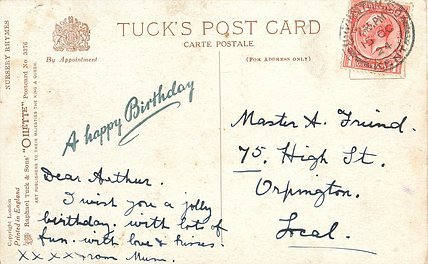 TUCK'S POST CARD
CARTE POSTALE
By Appointment
(FOR ADDRESS ONLY)
NURSERY RHYMES
Raphael Tuck & Sons' "OILETTE" Postcard No. 3376
ART PUBLISHERS TO THEIR MAJESTIES THE KING & QUEEN
Copyright London
Printed in England
A happy Birthday
Dear Arthur.
I wish you a jolly
birthday. with lots of
fun. with love & kisses.
XXXX from Mum.
Master A. Friend.
75. High St.
Orpington.
Local.
KENT